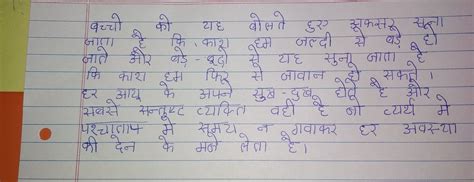 बच्चो को यह बोलते हुए अकसर सुना
जाता है कि काश हम जल्दी से बड़े हो
जाते और बड़े-बूढ़ो से यह सुना जाता है
कि काश हम फिर से जावान हो सकते।
हर आयु के अपने सुख-दुख होते है और
सबसे सन्तुष्ट व्यक्ति वही है जो व्यर्थ मे
पश्चाताप मे समय न गवाकर हर अवस्था
की देन के मजे लेता है।